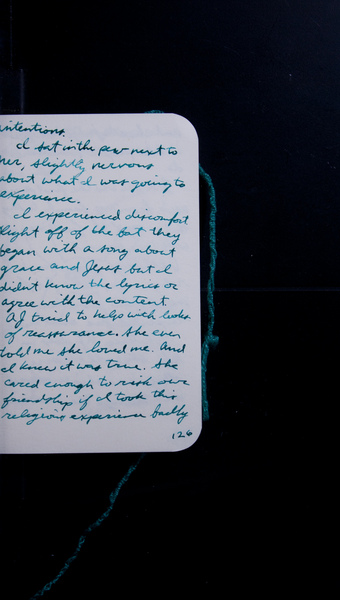 intentions.
I sat in the pew next to
her, slightly nervous
about what I was going to
experience.
I experienced discomfort
right off of the bat. They
began with a song about
grace and Jesus but I
didn't know the lyrics or
agree with the content.
AJ tried to help with looks
of reassurance. She even
told me she loved me. And
I knew it was true. She
cared enough to risk our
friendship if I took this
religious experience badly
126